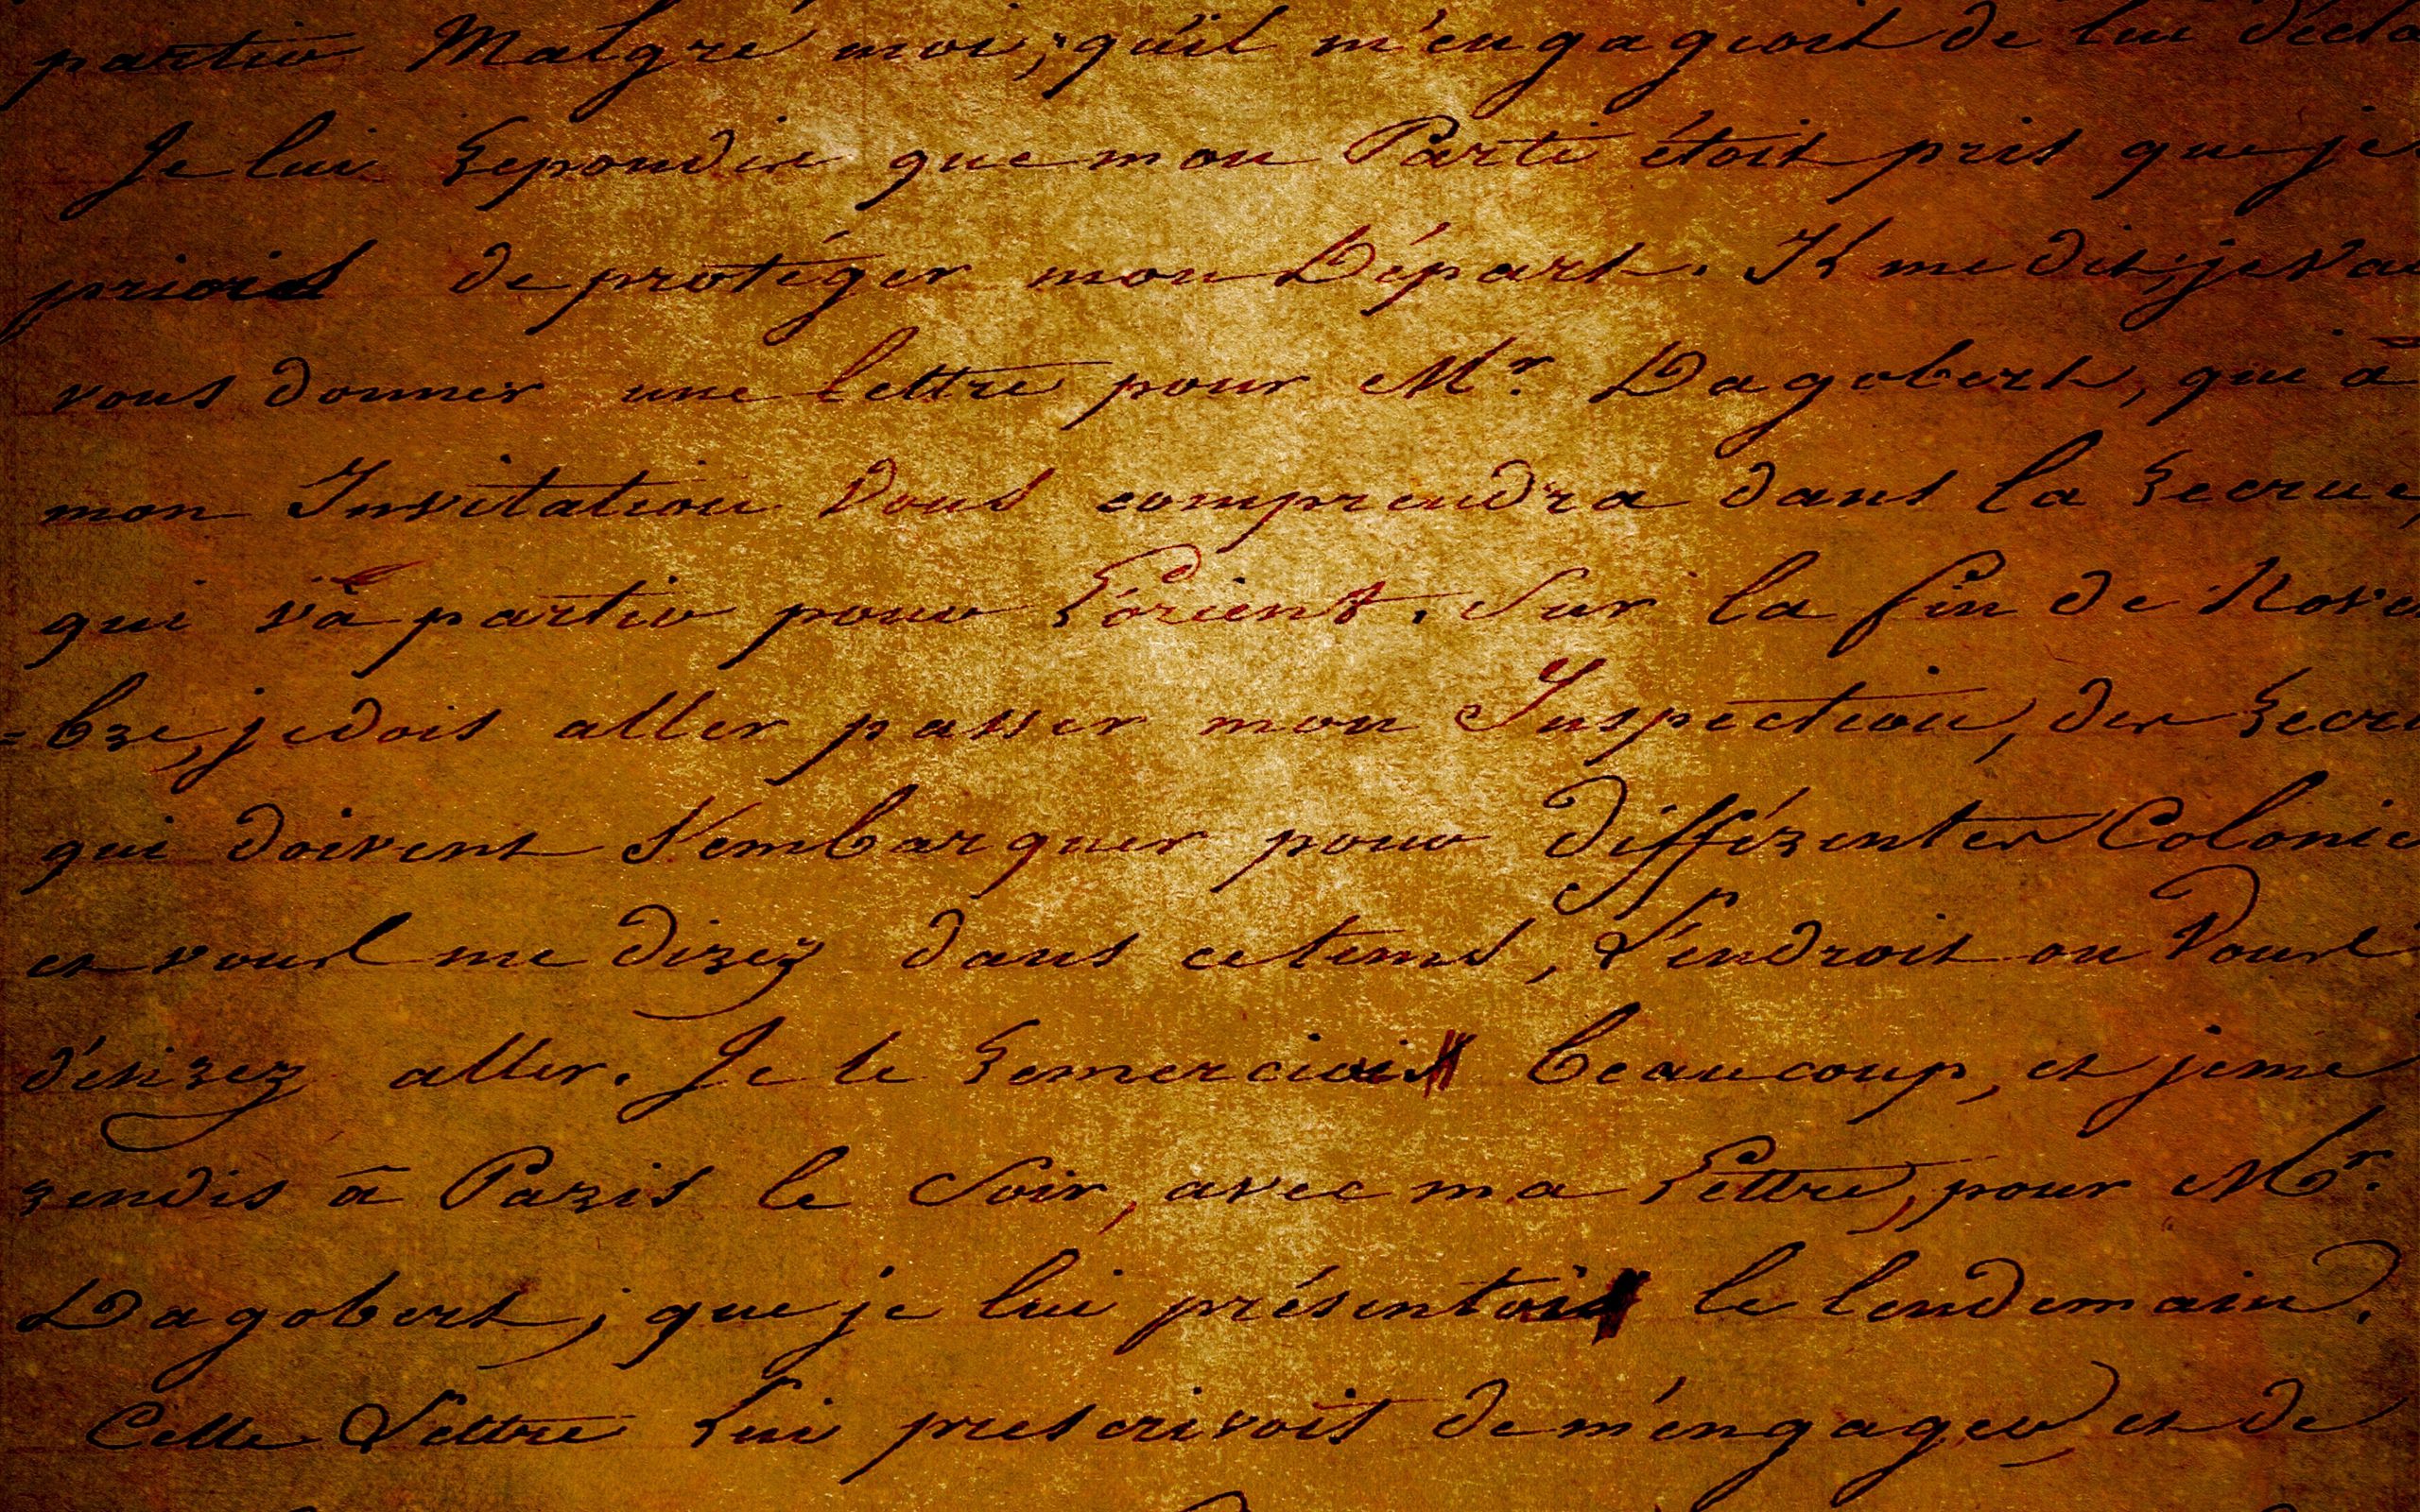 partir Malgré moi; qu'il m'engageoit de lui décla
Je lui répondis que mon Parti étoit pris que je
priois de protéger mon Départ. Il me dit, je vai
vous donner une lettre pour Mr. Dagobert, qui à
mon Invitation vous comprendra dans la recrue,
qui và partir pour L'orient. Sur la fin de Nove
=bre, je dois aller passer mon Inspection, des recru
qui doivent s'embarquer pour différentes Colonie
et vous me direz dans ce tems, l'endroit ou vous
désirez aller. Je le remerciai beaucoup, et je me
rendis à Paris le Soir, avec ma Lettre, pour Mr.
Dagobert; que je lui présentai le lendemain.
Cette Lettre lui prescrivoit de m'engager, et de